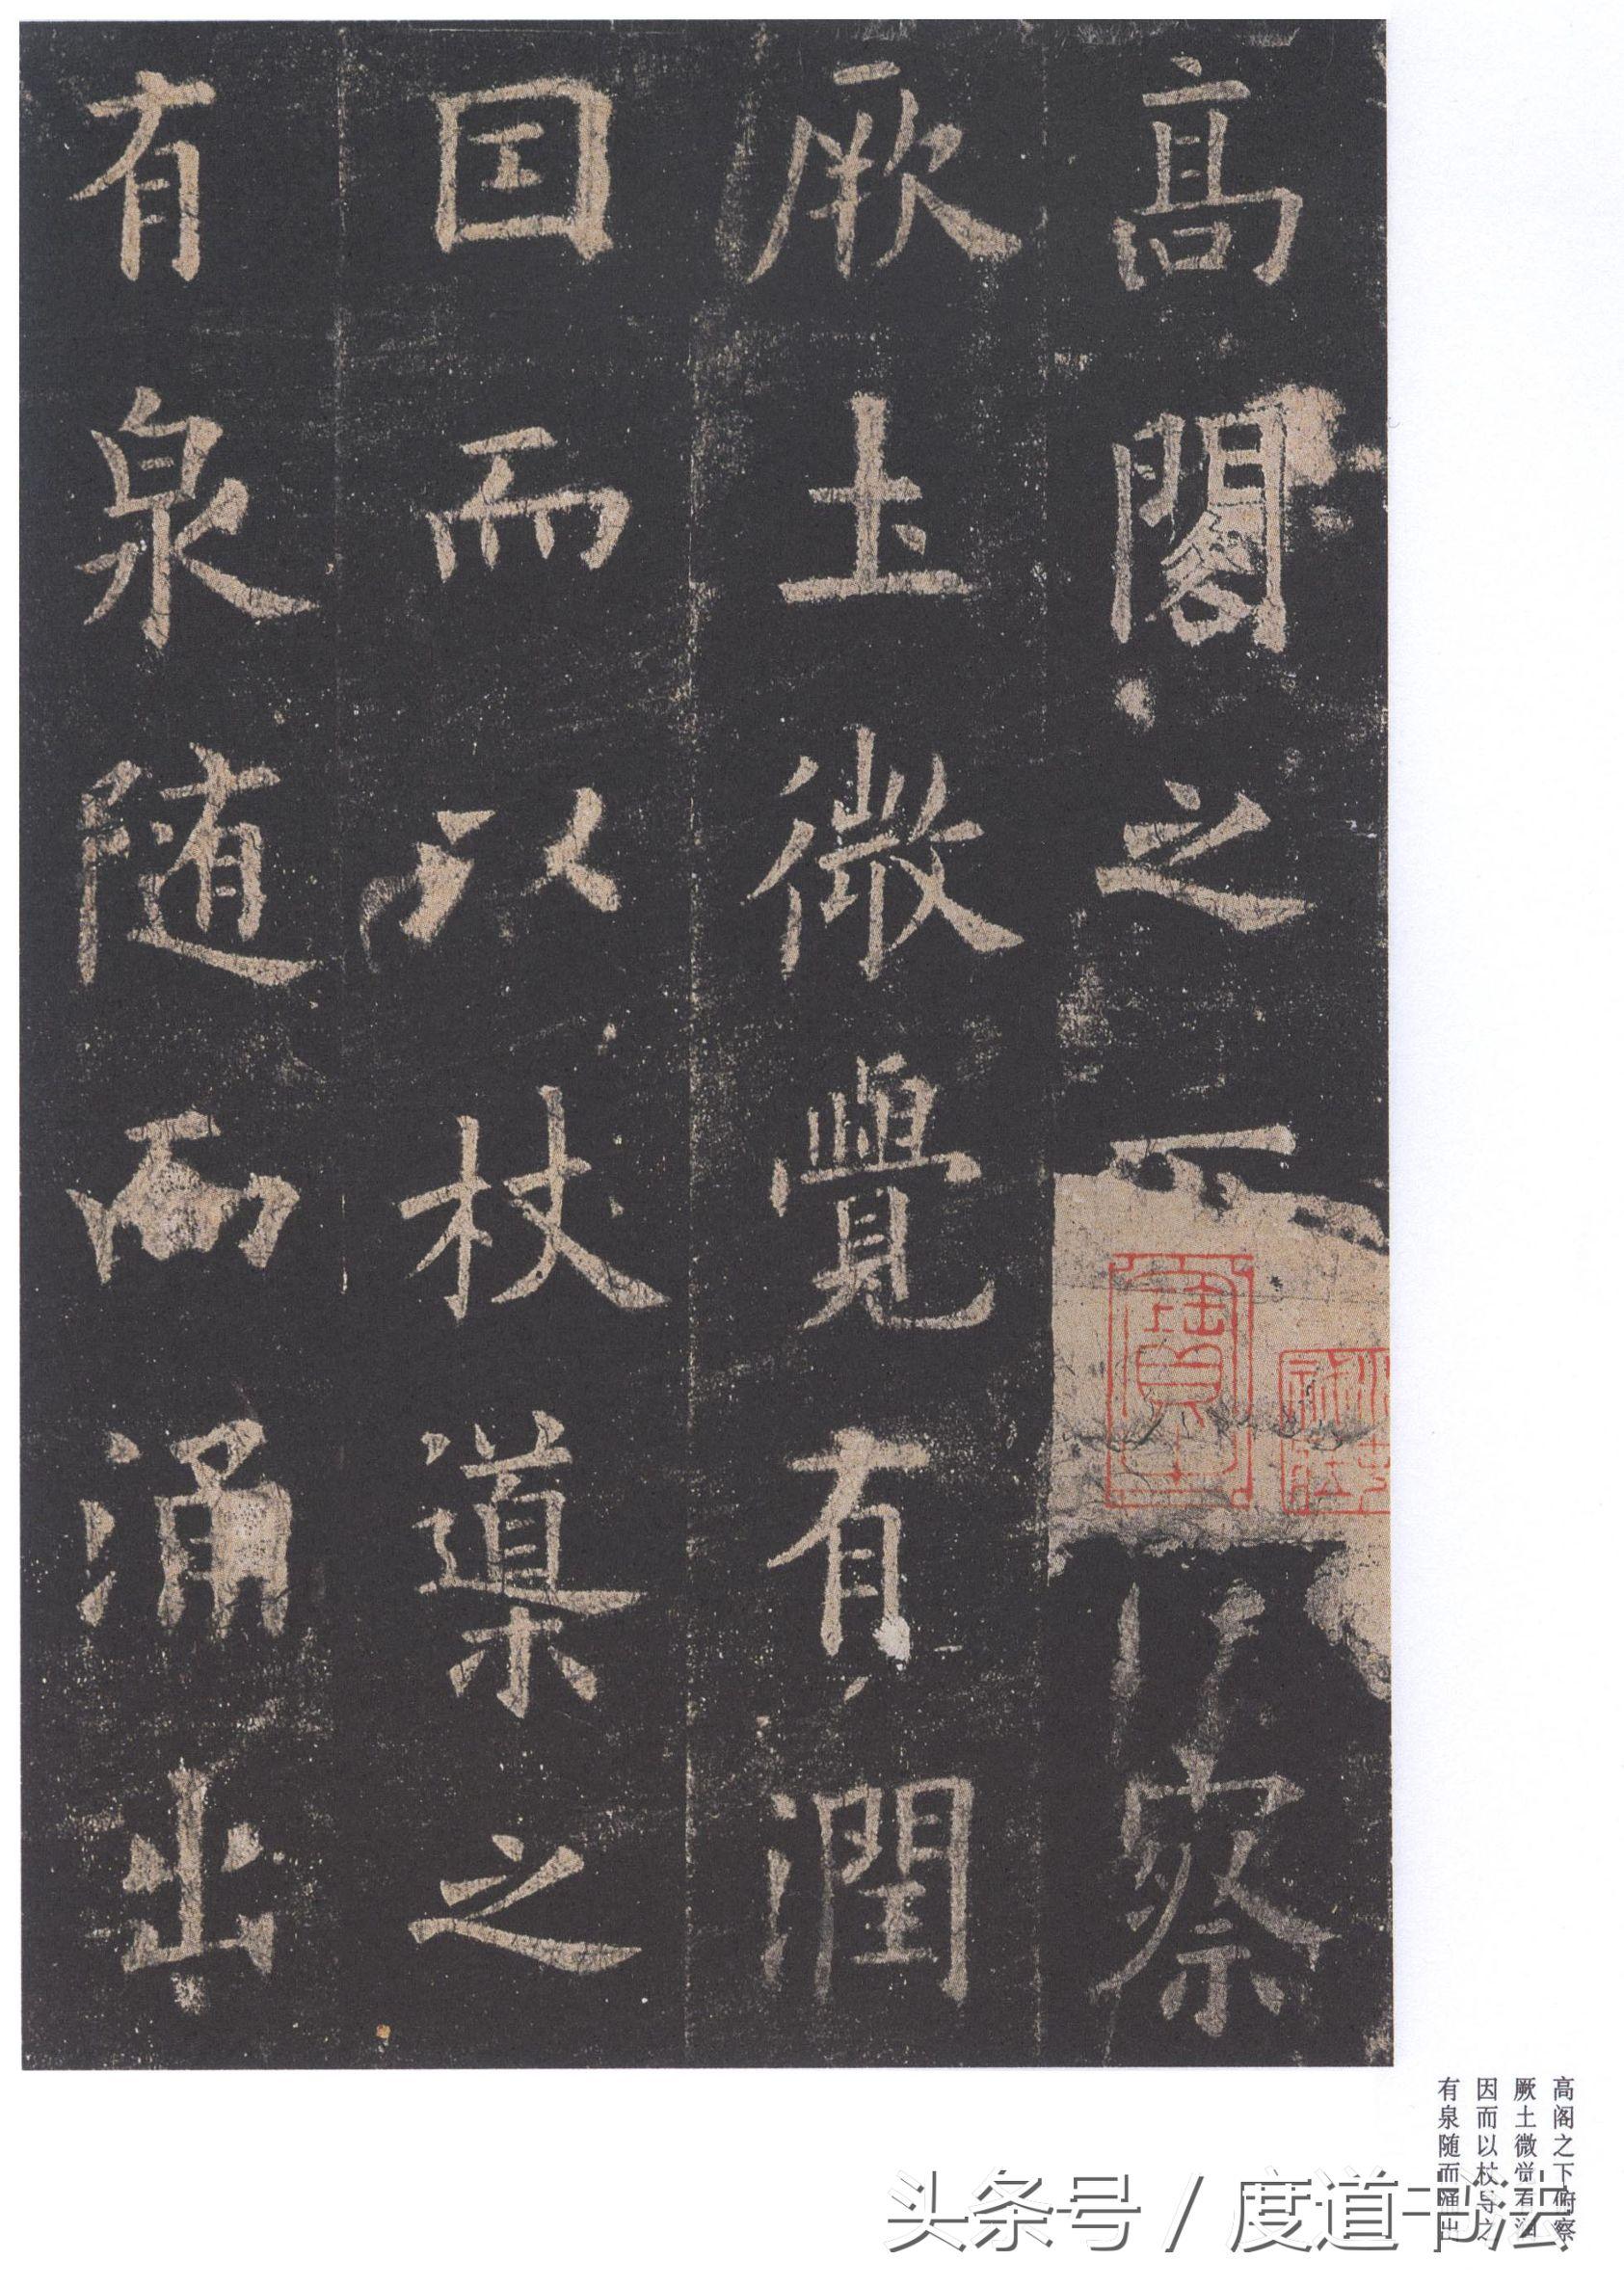 高閣之下俯察
厥土微覺有潤
因而以杖導之
有泉随而涌出
高阁之下俯察
厥土微觉有润
因而以杖导之
有泉随而涌出
头条号 / 度道书法